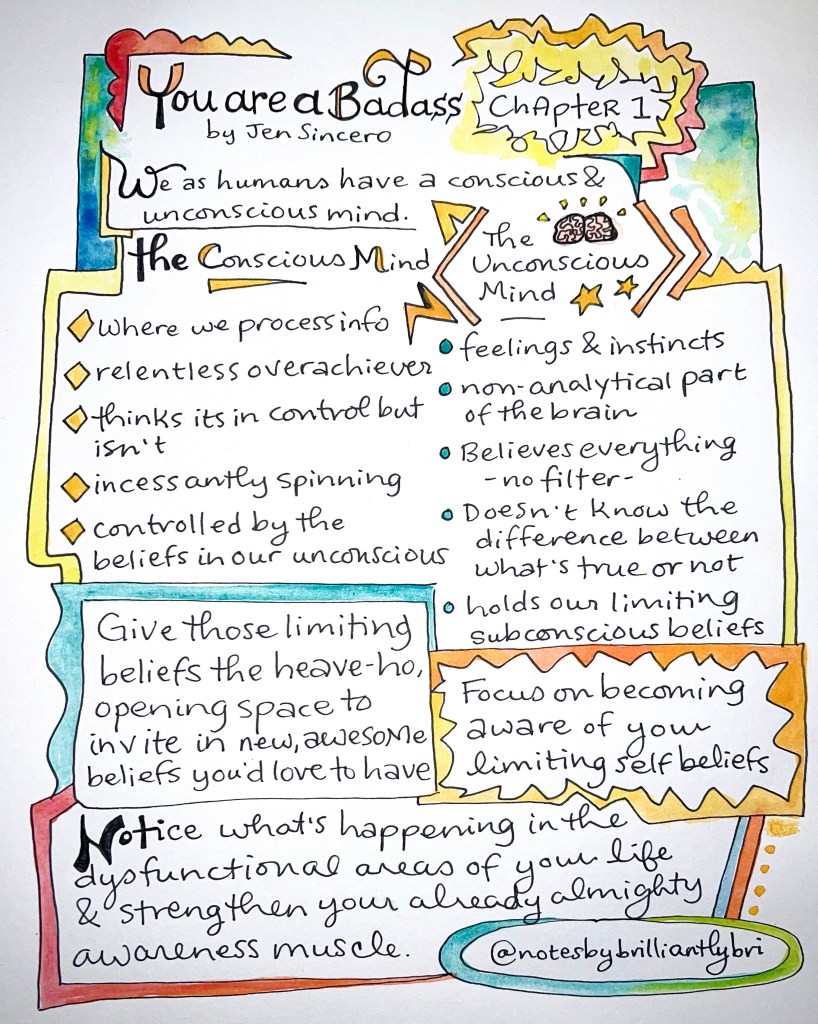 You are a Badass
by Jen Sincero
Chapter 1
We as humans have a conscious &
unconscious mind.
the Conscious Mind
where we process info
relentless overachiever
thinks its in control but
isn't
incessantly spinning
controlled by the
beliefs in our unconscious
The
Unconscious
Mind
feelings & instincts
non-analytical part
of the brain
Believes everything
-no filter-
Doesn't know the
difference between
what's true or not
holds our limiting
subconscious beliefs
Give those limiting
beliefs the heave-ho,
opening space to
invite in new, awesome
beliefs you'd love to have
Focus on becoming
aware of your
limiting self beliefs
Notice what's happening in the
dysfunctional areas of your life
& strengthen your already almighty
awareness muscle.
@notesbybrilliantlybri